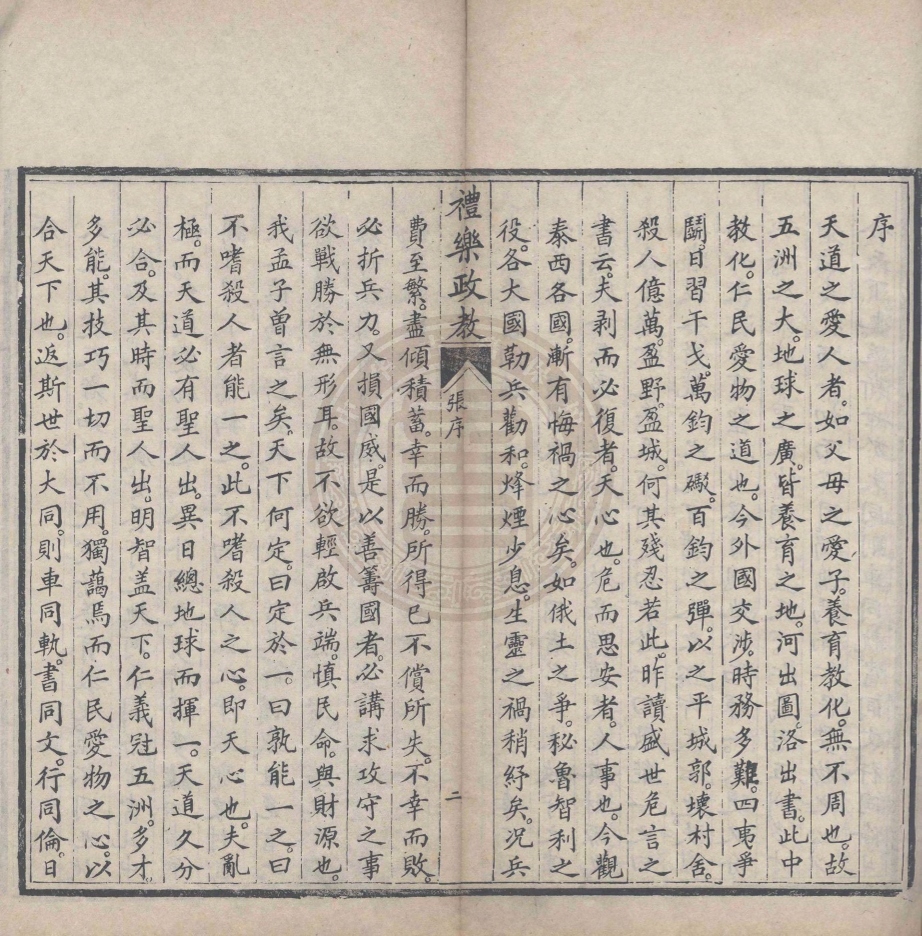 序
天道之愛人者。如父母之愛子。養育教化。無不周也。故
五洲之大。地球之廣。皆養育之地。河出圖。洛出書。此中
教化。仁民愛物之道也。今外國交涉。時務多難。四夷爭
鬭。日習干戈。萬鈞之礮。百鈞之彈。以之平城郭。壞村舍。
殺人億萬。盈野。盈城。何其殘忍若此。昨讀盛世危言之
書云。夫剥而必復者。天心也。危而思安者。人事也。今觀
泰西各國。漸有悔禍之心矣。如俄土之爭。秘魯智利之
役。各大國勒兵勸和。烽煙少息。生靈之禍稍紓矣。况兵
禮樂政教
張序
二
費至繁。盡傾積蓄。幸而勝。所得已不償所失。不幸而敗。
必折兵力。又損國威。是以善籌國者。必講求攻守之事
欲戰勝於無形耳。故不欲輕啟兵端。慎民命。與財源也。
我孟子曾言之矣。天下何定。曰定於一。曰孰能一之。曰
不嗜殺人者能一之。此不嗜殺人之心。即天心也。夫亂
極。而天道必有聖人出。異日總地球而揮一。天道久分
必合。及其時而聖人出。明智盖天下。仁義冠五洲。多才。
多能。其技巧一切而不用。獨藹焉而仁民愛物之心。以
合天下也。返斯世於大同。則車同軌。書同文。行同倫。日